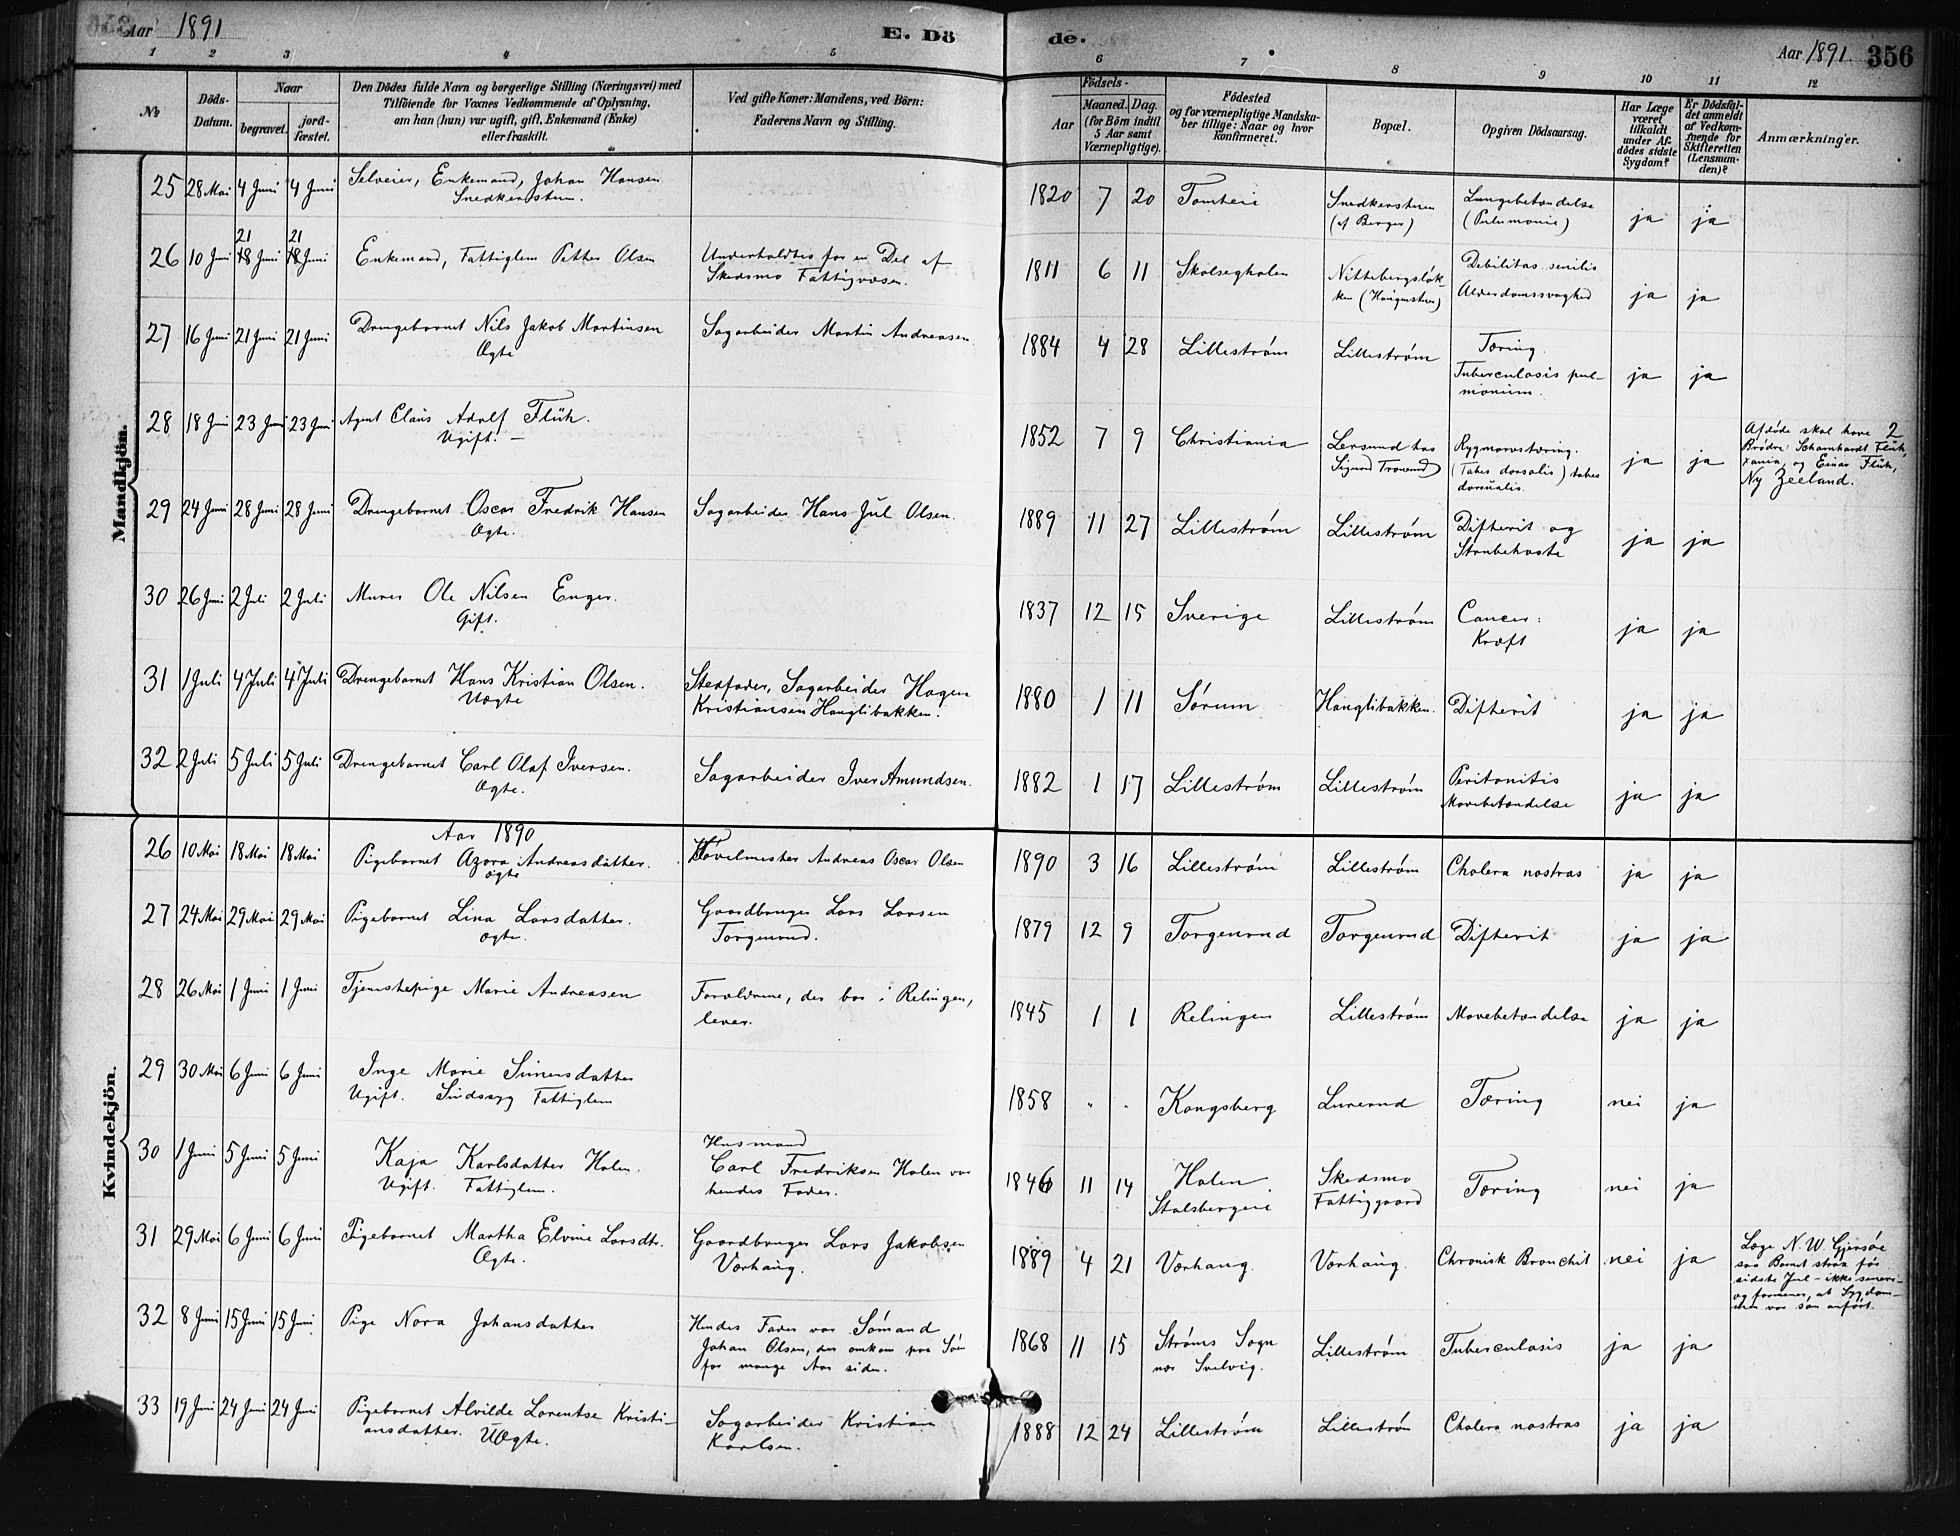 Aar 1891
E. Dö
de.
Aar 1891.
356
1 2 3 4 5 6 7 8 9 10 11 12
№
Döds-Datum.
Naar
begravet.
jord-fæstet.
Den Dödes fulde Navn og borgerlige Stilling (Næringsvei) med
Tilföiende for Voxnes Vedkommende af Oplysning,
om han (hun) var ugift, gift, Enkemand (Enke)
eller fraskilt.
Ved gifte Koner: Mandens, ved Börn:
Faderens Navn og Stilling.
Födsels-
Aar
Maaned.
Dag.
(for Börn indtil
5 Aar samt
Værnepligtige).
Födested
og for værnepligtige Mandska-
ber tillige: Naar og hvor
konfirmeret.
Bopæl.
Opgiven Dödsaarsag.
Har Læge
været
tilkaldt
under Af-
dödes sidste
Sygdom?
Er Dödsfal-
det anmeldt
af Vedkom-
mende for
Skifteretten
(Lensman-
den)?
Anmærkninger.
Mandkjön.
25 28 Mai 4 Juni 4 Juni Selveier, Enkemand, Johan Hansen
Snedkerstuen.
1820 7 20 Tomteie Snedkerstuen
(af Berger)
Lungebetændelse
(Pnlumonie)
ja ja
26 10 Juni 21 18 Juni 21 18 Juni Enkemand, Fattiglem Petter Olsen Underholdtes for en Del af
Skedsmo Fattigvæsen.
1811 6 11 Nittebergsløk-
ken
Debilitas senilis
Alderdomssvaghed
ja ja
27 16 Juni 21 Juni 21 Juni Drengebarnet Nils Jakob Martinsen
Ægte
Sagarbeider Martin Andreasen
1884 4 28 Lillestrøm Lillestrøm Tæring.
Tuberculosis pul-
monium.
ja ja
28 18 Juni 23 Juni 23 Juni Agent Claus Adolf Flük.
Ugift. –
1852 7 9 Christiania Lersund hos
Rygmarvstæring.
(Tabes dorsalis) tabes
dorsualis.
ja ja
Afdøde skal have 2
Brødre: Scharnhardt Flük,
Xania, og Einar Flük,
Ny Zeeland.
29 24 Juni 28 Juni 28 Juni Drengebarnet Oscar Fredrik Hansen
Ægte.
Sagarbeider Hans Jul Olsen.
1889 11 27 Lillestrøm Lillestrøm Difterit og
Strubehoste
ja ja
30 26 Juni 2 Juli 2 Juli Murer Ole Nilsen Enger.
Gift.
1837 12 15 Sverige Lillestrøm Cancer:
Kræft
ja ja
31 1 Juli 4 Juli 4 Juli Drengebarnet Hans Kristian Olsen.
Uægte
Stedfader, Sagarbeider Hagen
Kristiansen Hanglibakken.
1880 1 11 Sørum Hanglibakken. Difterit
ja ja
32 2 Juli 5 Juli 5 Juli Drengebarnet Carl Olaf Iversen.
Ægte.
Sagarbeider Iver Amundsen.
1882 1 17 Lillestrøm Lillestrøm Peritonitis
Mavebetændelse
ja ja
Kvindekjön.
Aar 1890
26 10 Mai 18 Mai 18 Mai Pigebarnet Azora Andreasdatter.
Ægte
Høvelmester Andreas Oscar Olsen
1890 3 16 Lillestrøm Lillestrøm Cholera nostras ja ja
27 24 Mai 29 Mai 29 Mai Pigebarnet Lina Larsdatter.
Ægte.
Gaardbruger Lars Larsen
Torgenrud.
1879 12 9 Torgenrud Torgenrud Difterit ja ja
28 26 Mai 1 Juni 1 Juni Tjenestepige Marie Andreasen Forældrene, der bor i Relingen,
lever.
1845 1 1 Relingen Lillestrøm Mavebetændelse ja ja
29 30 Mai 6 Juni 6 Juni Inge Marie Simensdatter
Ugift. Sindssyg Fattiglem
1858 " " Kongsberg Lurerud Tæring nei ja
30 1 Juni 5 Juni 5 Juni Kaja Karlsdatter Holen.
Ugift. Fattiglem.
Husmand
Carl Fredriksen Holen var
hendes Fader.
1846 11 14 Holen
Stalsbergeie
Skedsmo
Fattiggaard
Tæring nei ja
31 29 Mai 6 Juni 6 Juni Pigebarnet Martha Elvine Larsdtr.
Ægte.
Gaardbruger Lars Jakobsen
Vorhaug.
1889 4 21 Vorhaug. Vorhaug. Chronisk Bronchit nei ja
Læge N. W. Gjersøe
saa Barnet strax før
sidste Jul – ikke senere –
og formener, at Sygdom-
men var saa anført.
32 8 Juni 15 Juni 15 Juni Pige Nora Johansdatter Hendes Fader var Sømand
Johan Olsen, der omkom paa Søen
for mange Aar siden.
1868 11 15 Strøms Sogn
nær Svelvig.
Lillestrøm Tuberculosis ja ja
33 19 Juni 24 Juni 24 Juni Pigebarnet Alvilde Lorentse Kristi-
ansdatter. Uægte.
Sagarbeider Kristian
Karlsen.
1888 12 24 Lillestrøm Lillestrøm Cholera nostras ja ja